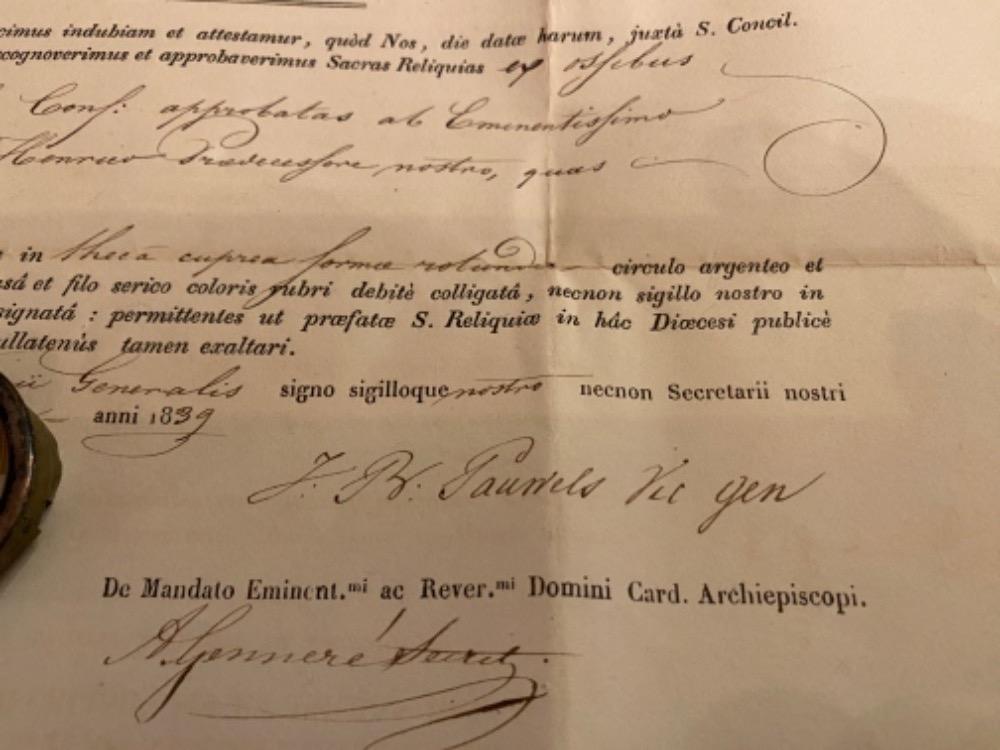 cimus indubiam et attestamur, quòd Nos, die datæ harum, juxtà S. Concil.
cognoverimus et approbaverimus Sacras Reliquias ex ossibus
Conf: approbatas ab Eminentissimo
Henrico Prædecessore nostro, quas
in thecâ cuprea formæ rotundæ circulo argenteo et
usâ et filo serico coloris rubri debitè colligatâ, necnon sigillo nostro in
signatâ : permittentes ut præfatæ S. Reliquiæ in hâc Diœcesi publicè
ullatenùs tamen exaltari.
ii Generalis signo sigilloque nostro necnon Secretarii nostri
anni 1839
J. B. Pauwels Vic gen
De Mandato Eminent.mi ac Rever.mi Domini Card. Archiepiscopi.
A. Genneré Secret.